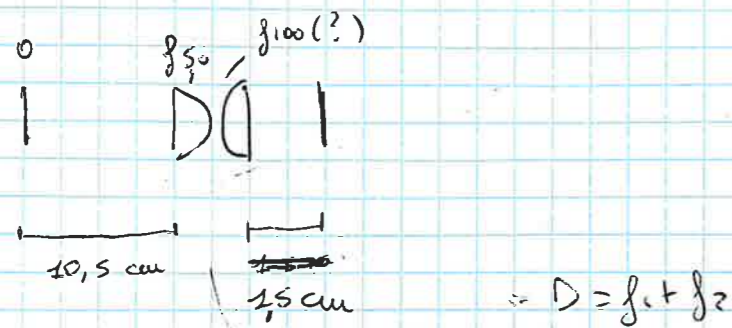 0
f50
f100(?)
10,5 cm
1,5 cm
D = f1 + f2